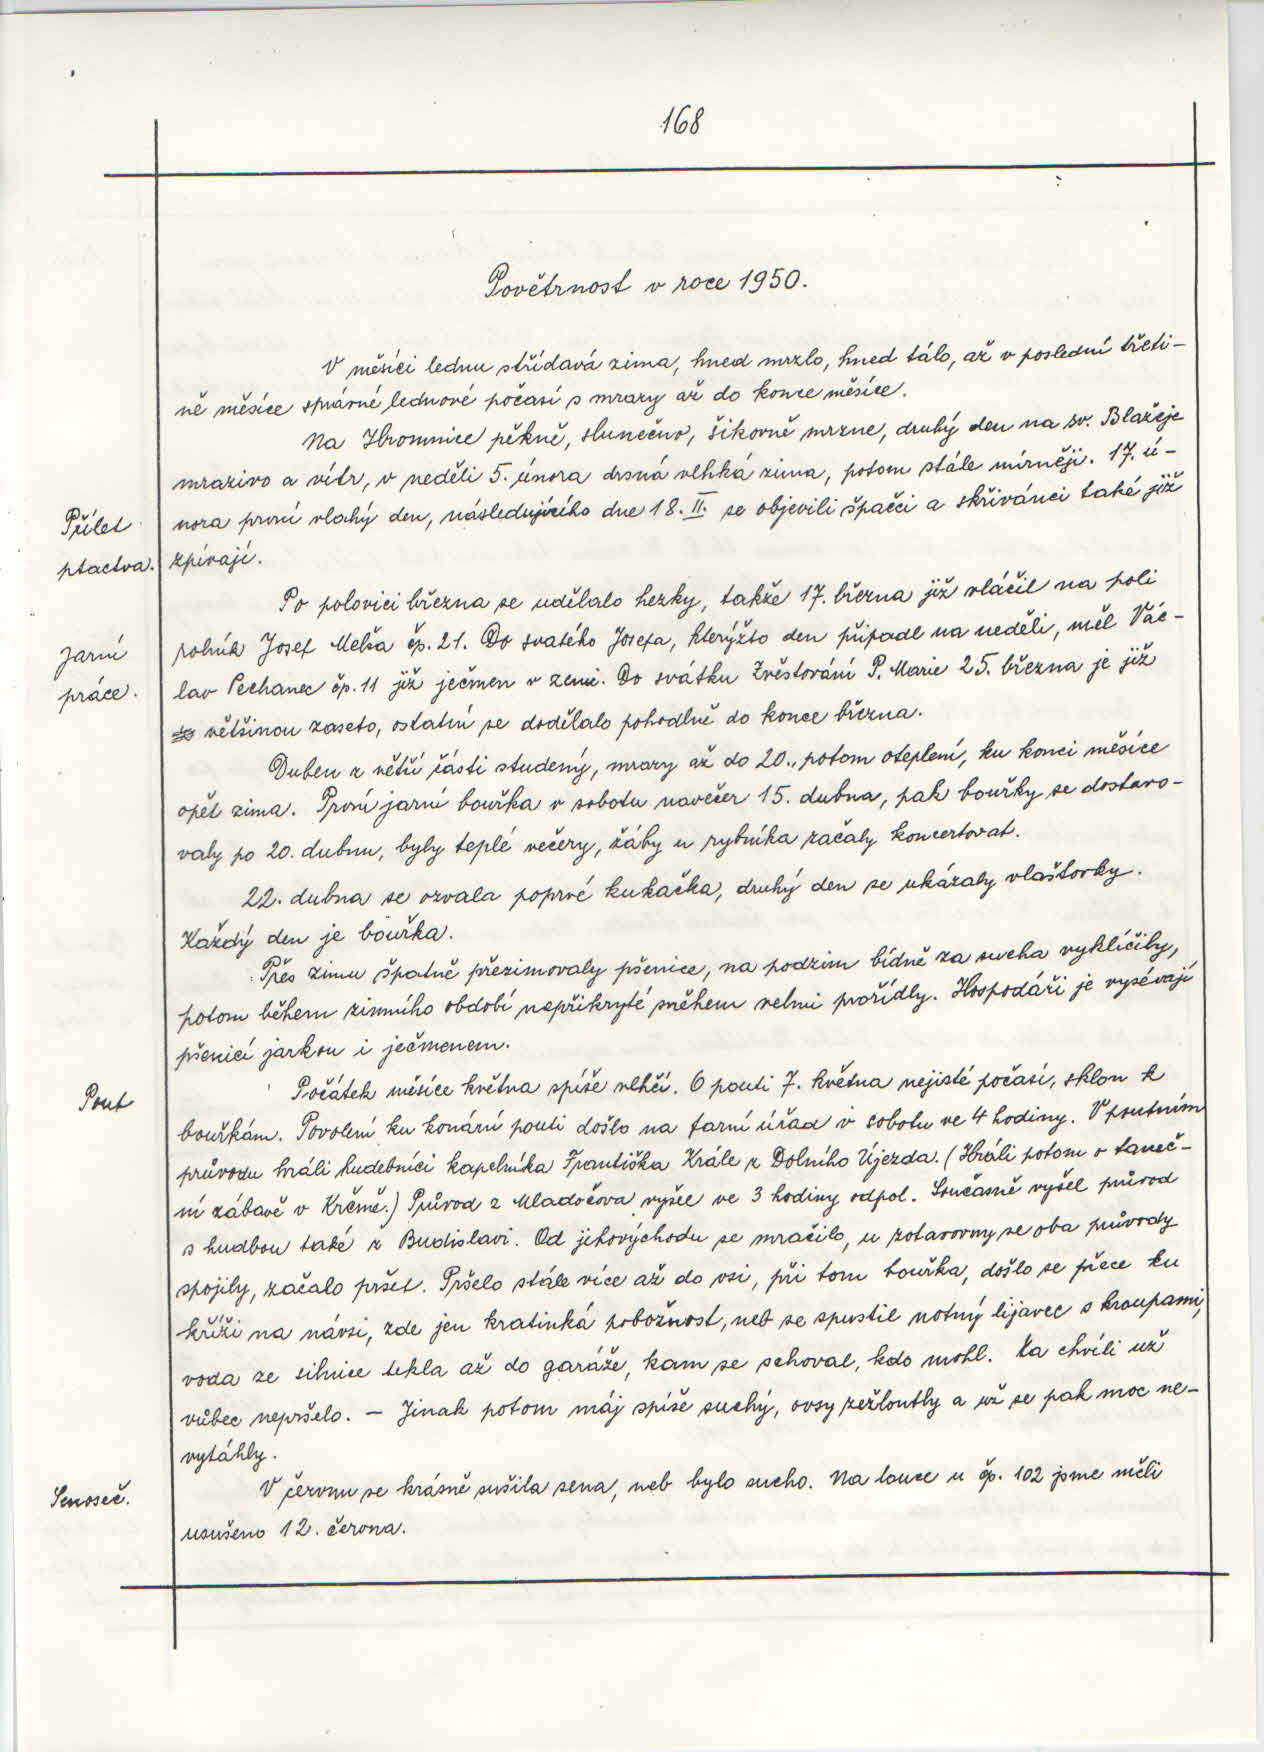 168
Povětrnost v roce 1950.
V měsíci lednu střídavá zima, hned mrzlo, hned tálo, až v poslední třeti-
ně měsíce správné lednové počasí s mrazy až do konce měsíce.
Na Hromnice pěkně, slunečno, šikovně mrzne, druhý den na sv. Blažeje
mrazivo a vítr, v neděli 5. února drsná vlhká zima, potom stále mírněji. 17. ú-
nora první vlahý den, následujícího dne 18. II. se objevili špačci a skřivánci také již
Přílet
ptactva.
zpívají.
Po polovici března se udělalo hezky, takže 17. března již vláčil na poli
Jarní
práce.
rolník Josef Melša čp. 21. Do svatého Josefa, kterýžto den připadl na neděli, měl Vác-
lav Pechanec čp. 11 již ječmen v zemi. Do svátku Zvěstování P. Marie 25. března je již
většinou zaseto, ostatní se dodělalo pohodlně do konce března.
Duben z větší části studený, mrazy až do 20., potom oteplení, ku konci měsíce
opět zima. První jarní bouřka v sobotu navečer 15. dubna, pak bouřky se dostavo-
valy po 20. dubnu, byly teplé večery, žáby u rybníka začaly koncertovat.
22. dubna se ozvala poprvé kukačka, druhý den se ukázaly vlaštovky.
Každý den je bouřka.
Přes zimu špatně přezimovaly pšenice, na podzim bídně za sucha vyklíčily,
potom během zimního období nepřikryté sněhem velmi prořídly. Hospodáři je vysévají
pšenicí jarkou i ječmenem.
Pout
Počátek měsíce května spíše vlhčí. O pouti 7. května nejisté počasí, sklon k
bouřkám. Povolení ku konání pouti došlo na farní úřad v sobotu ve 4 hodiny. V poutním
průvodu hráli hudebníci kapelníka Františka Krále z Dolního Újezda. (Hráli potom o taneč-
ní zábavě v Krčmě.) Průvod z Mladočova vyšel ve 3 hodiny odpol. Současně vyšel průvod
s hudbou také z Budislavi. Od jihovýchodu se mračilo, u zotavovny se oba průvody
spojily, začalo pršet. Pršelo stále více až do vsi, při tom bouřka, došlo se přece ku
kříži na návsi, zde jen kratinká pobožnost, neb se spustil notný lijavec s kroupami,
voda ze silnice tekla až do garáže, kam se schoval, kdo mohl. Za chvíli už
vůbec nepršelo. — Jinak potom máj spíše suchý, ovsy zežloutly a už se pak moc ne-
vytáhly.
Senoseč.
V červnu se krásně sušila sena, neb bylo sucho. Na louce u čp. 102 jsme měli
usušeno 12. června.